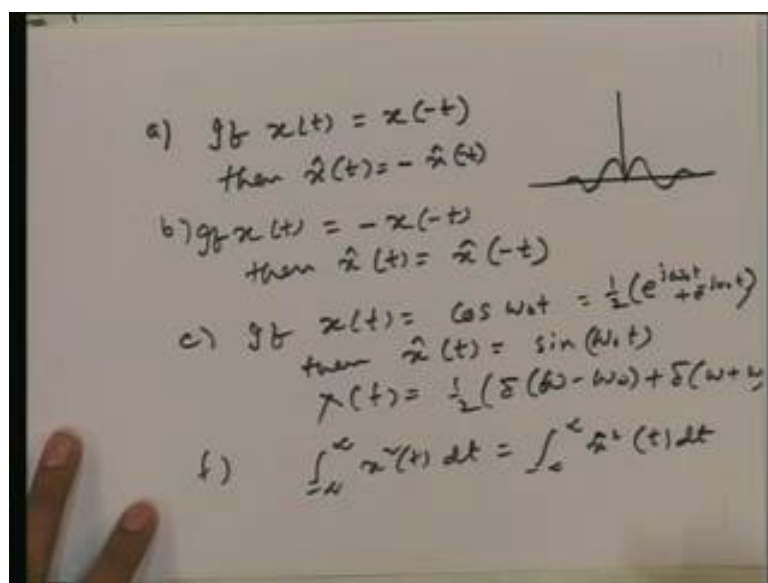 a) If x(t) = x(-t)
then x̂(t) = - x̂(-t)
b) If x(t) = - x(-t)
then x̂(t) = x̂(-t)
c) If x(t) = cos ω₀t = ½(e^{jω₀t} + e^{-jω₀t})
then x̂(t) = sin(ω₀t)
X(f) = ½(δ(ω-ω₀) + δ(ω+ω
f) ∫_{-∞}^{∞} x²(t) dt = ∫_{-∞}^{∞} x̂²(t) dt